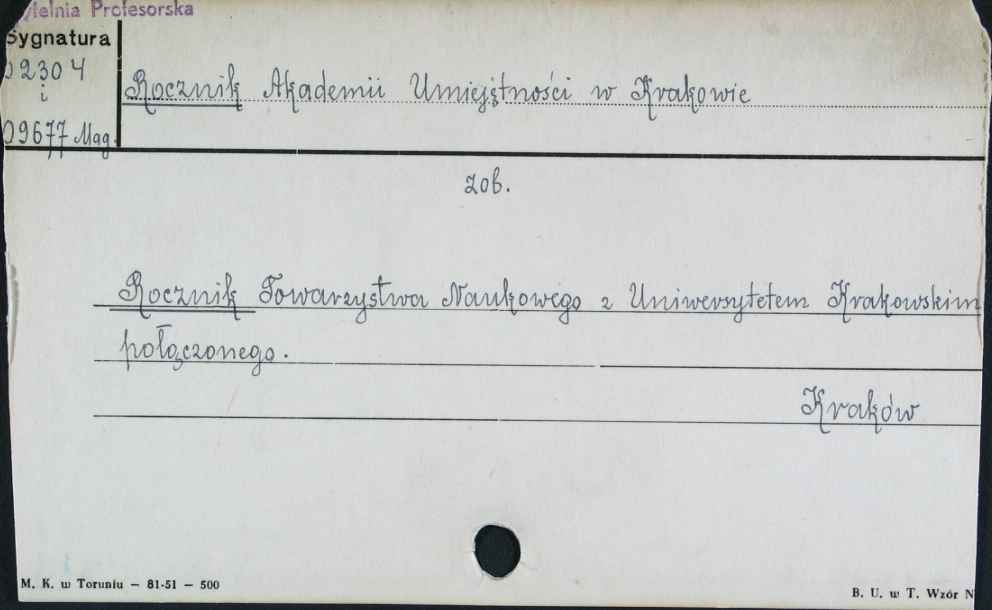 ytelnia Profesorska
Sygnatura
02304
i
09677 Mag.
Rocznik Akademii Umiejętności w Krakowie
zob.
Rocznik Towarzystwa Naukowego z Uniwersytetem Krakowskim
połączonego.
Kraków
M. K. w Toruniu — 81-51 — 500
B. U. w T. Wzór N